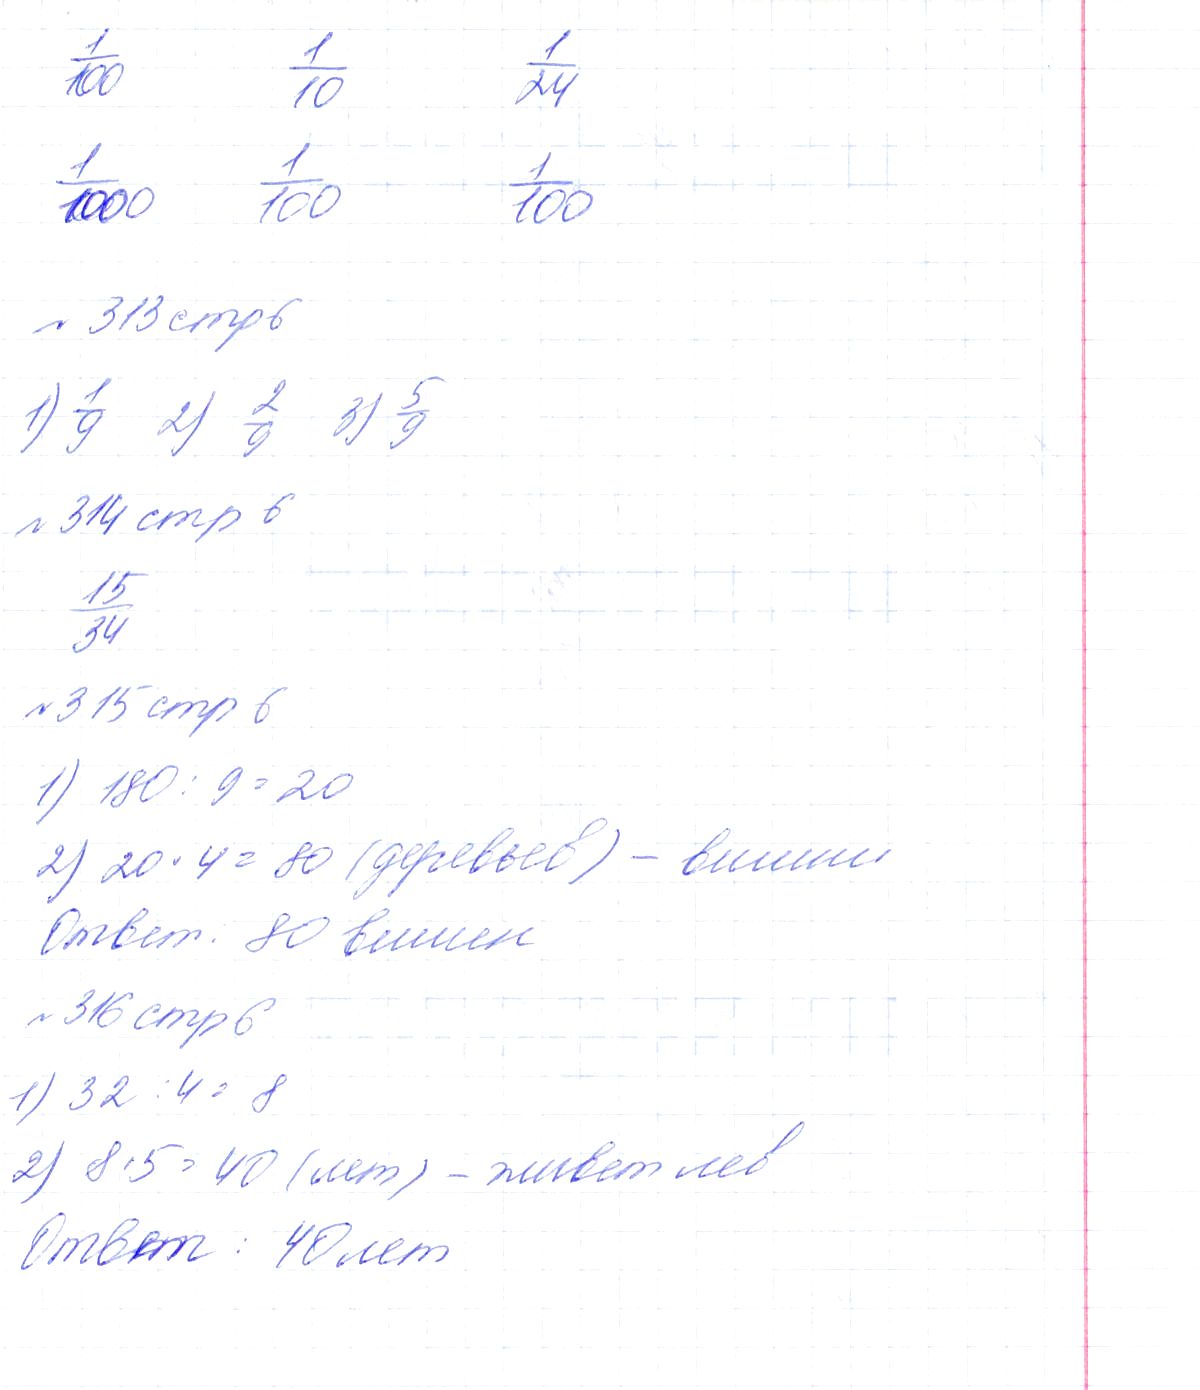 1/100 1/10 1/24
1/1000 1/100 1/100
№ 313 стр 6
1) 1/9 2) 2/9 3) 5/9
№ 314 стр 6
15/34
№ 315 стр 6
1) 180 : 9 = 20
2) 20 · 4 = 80 (деревьев) – вишни
Ответ: 80 вишен
№ 316 стр 6
1) 32 : 4 = 8
2) 8 · 5 = 40 (лет) – живет лев
Ответ : 40 лет